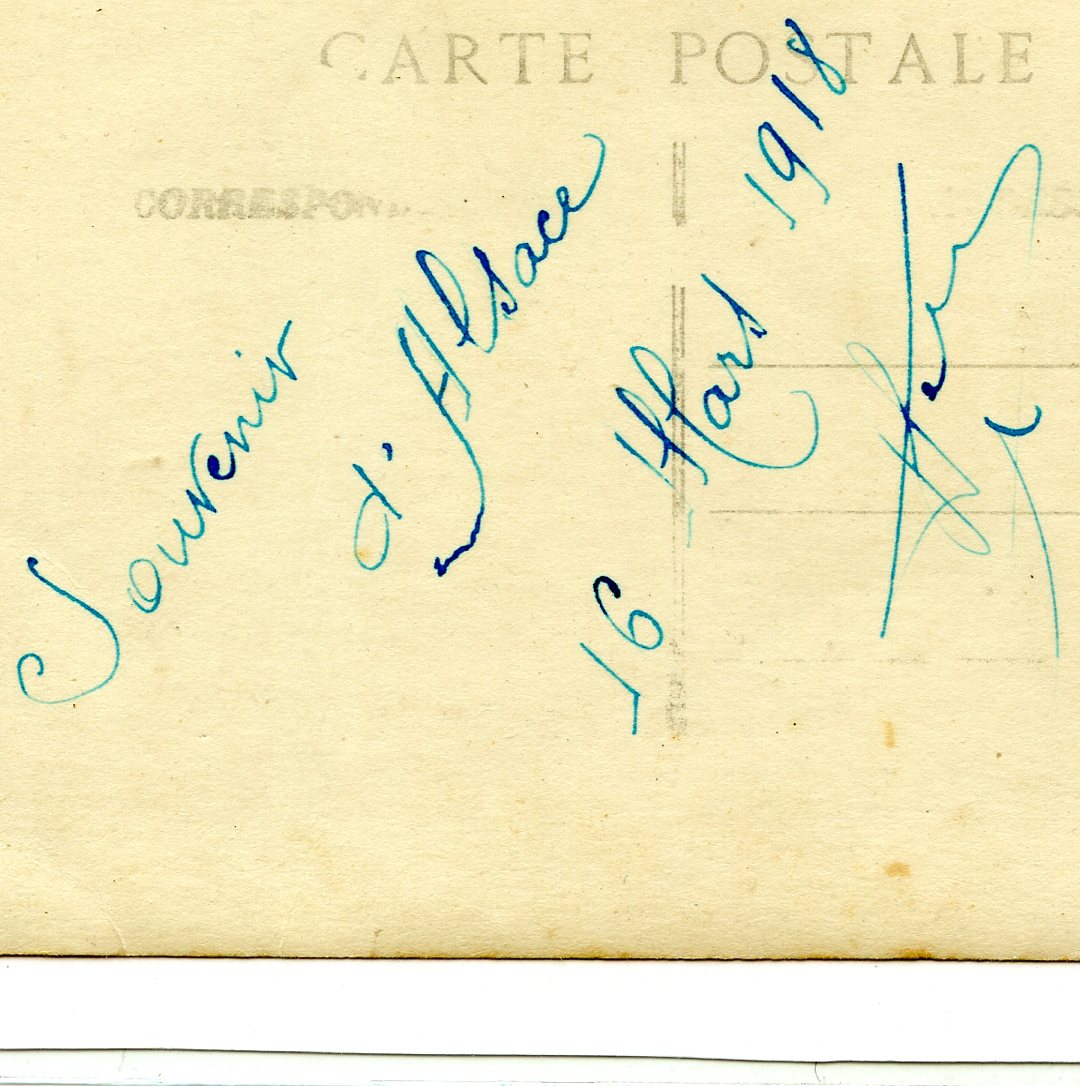 CARTE POSTALE
CORRESPON
Souvenir
d'Alsace
16 Mars 1918